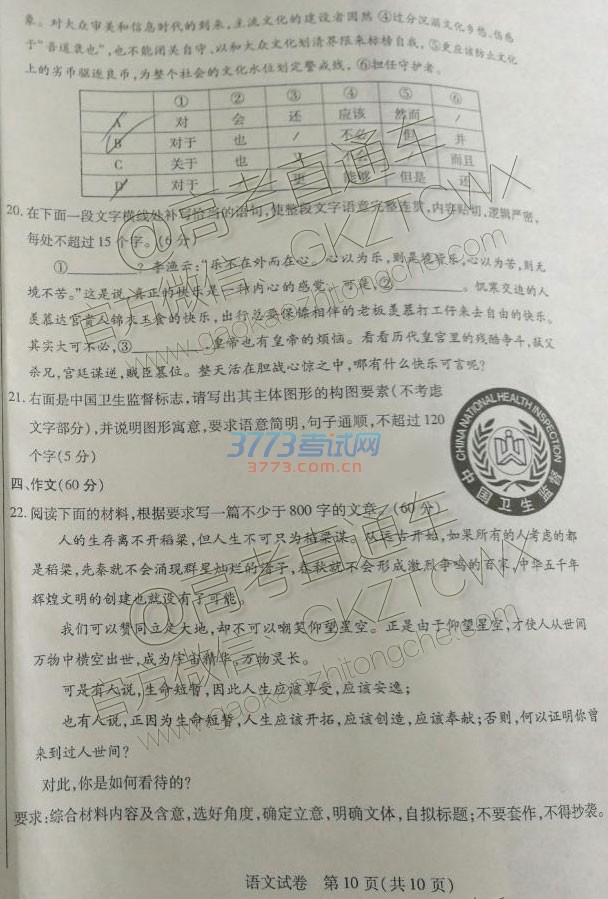 象。对大众审美和信息时代的到来,主流文化的建设者固然④过分沉溺文化乡愁、伤感
于“吾道衰也”,也不能闭关自守、以和大众文化划清界限来标榜自我,⑤更应该防止文化
上的劣币驱逐良币,为整个社会的文化水位划定警戒线,⑥担任守护者。
① ② ③ ④ ⑤ ⑥
A 对 会 还 应该 然而 /
B 对于 也 / 不必 但 并
C 关于 也 而且
D 对于 / 更 能够 但是 还
20. 在下面一段文字横线处补写恰当的语句,使整段文字语意完整连贯,内容贴切,逻辑严密,
每处不超过15个字。(6分)
①________?李渔云:“乐不在外而在心。心以为乐,则是境皆乐,心以为苦,则无
境不苦。”这是说,真正的快乐是一种内心的感觉。可是,②________。饥寒交迫的人
羡慕达官贵人锦衣玉食的快乐,出行总要保镖相伴的老板羡慕打工仔来去自由的快乐。
其实大可不必,③________,皇帝也有皇帝的烦恼。看看历代皇宫里的残酷争斗,弑父
杀兄,宫廷谋逆,贼臣篡位。整天活在胆战心惊之中,哪有什么快乐可言呢?
21. 右面是中国卫生监督标志,请写出其主体图形的构图要素(不考虑
文字部分),并说明图形寓意,要求语意简明,句子通顺,不超过120
个字(5分)
CHINA NATIONAL HEALTH INSPECTION
中国卫生监督
四、作文(60分)
22. 阅读下面的材料,根据要求写一篇不少于800字的文章。(60分)
人的生存离不开稻粱,但人生不可只为稻粱谋。从远古开始,如果所有的人考虑的都
是稻粱,先秦就不会涌现群星灿烂的诸子,春秋就不会形成激烈争鸣的百家,中华五千年
辉煌文明的创建也就没有了可能。
我们可以赞同立足大地,却不可以嘲笑仰望星空。正是由于仰望星空,才使人从世间
万物中横空出世,成为宇宙精华、万物灵长。
可是有人说,生命短暂,因此人生应该享受,应该安逸;
也有人说,正因为生命短暂,人生应该开拓,应该创造,应该奉献;否则,何以证明你曾
来到过人世间?
对此,你是如何看待的?
要求:综合材料内容及含意,选好角度,确定立意,明确文体,自拟标题;不要套作,不得抄袭。
语文试卷 第10页(共10页)
@高考直通车
官方微信:GKZTCWX
www.gaokaozhitongche.com
3773考试网
3773.com.cn
@高考直通车
官方微信:GKZTCWX
www.gaokaozhitongche.com